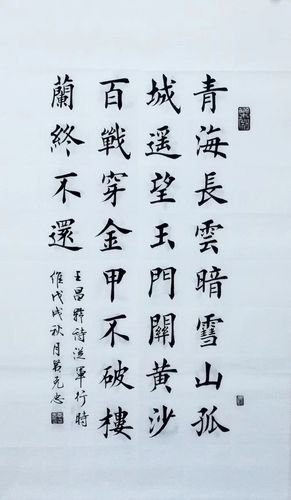 青海長雲暗雪山孤
城遥望玉門關黄沙
百戰穿金甲不破樓
蘭終不還
王昌齡詩從軍行時
維戊戌秋月若克忠